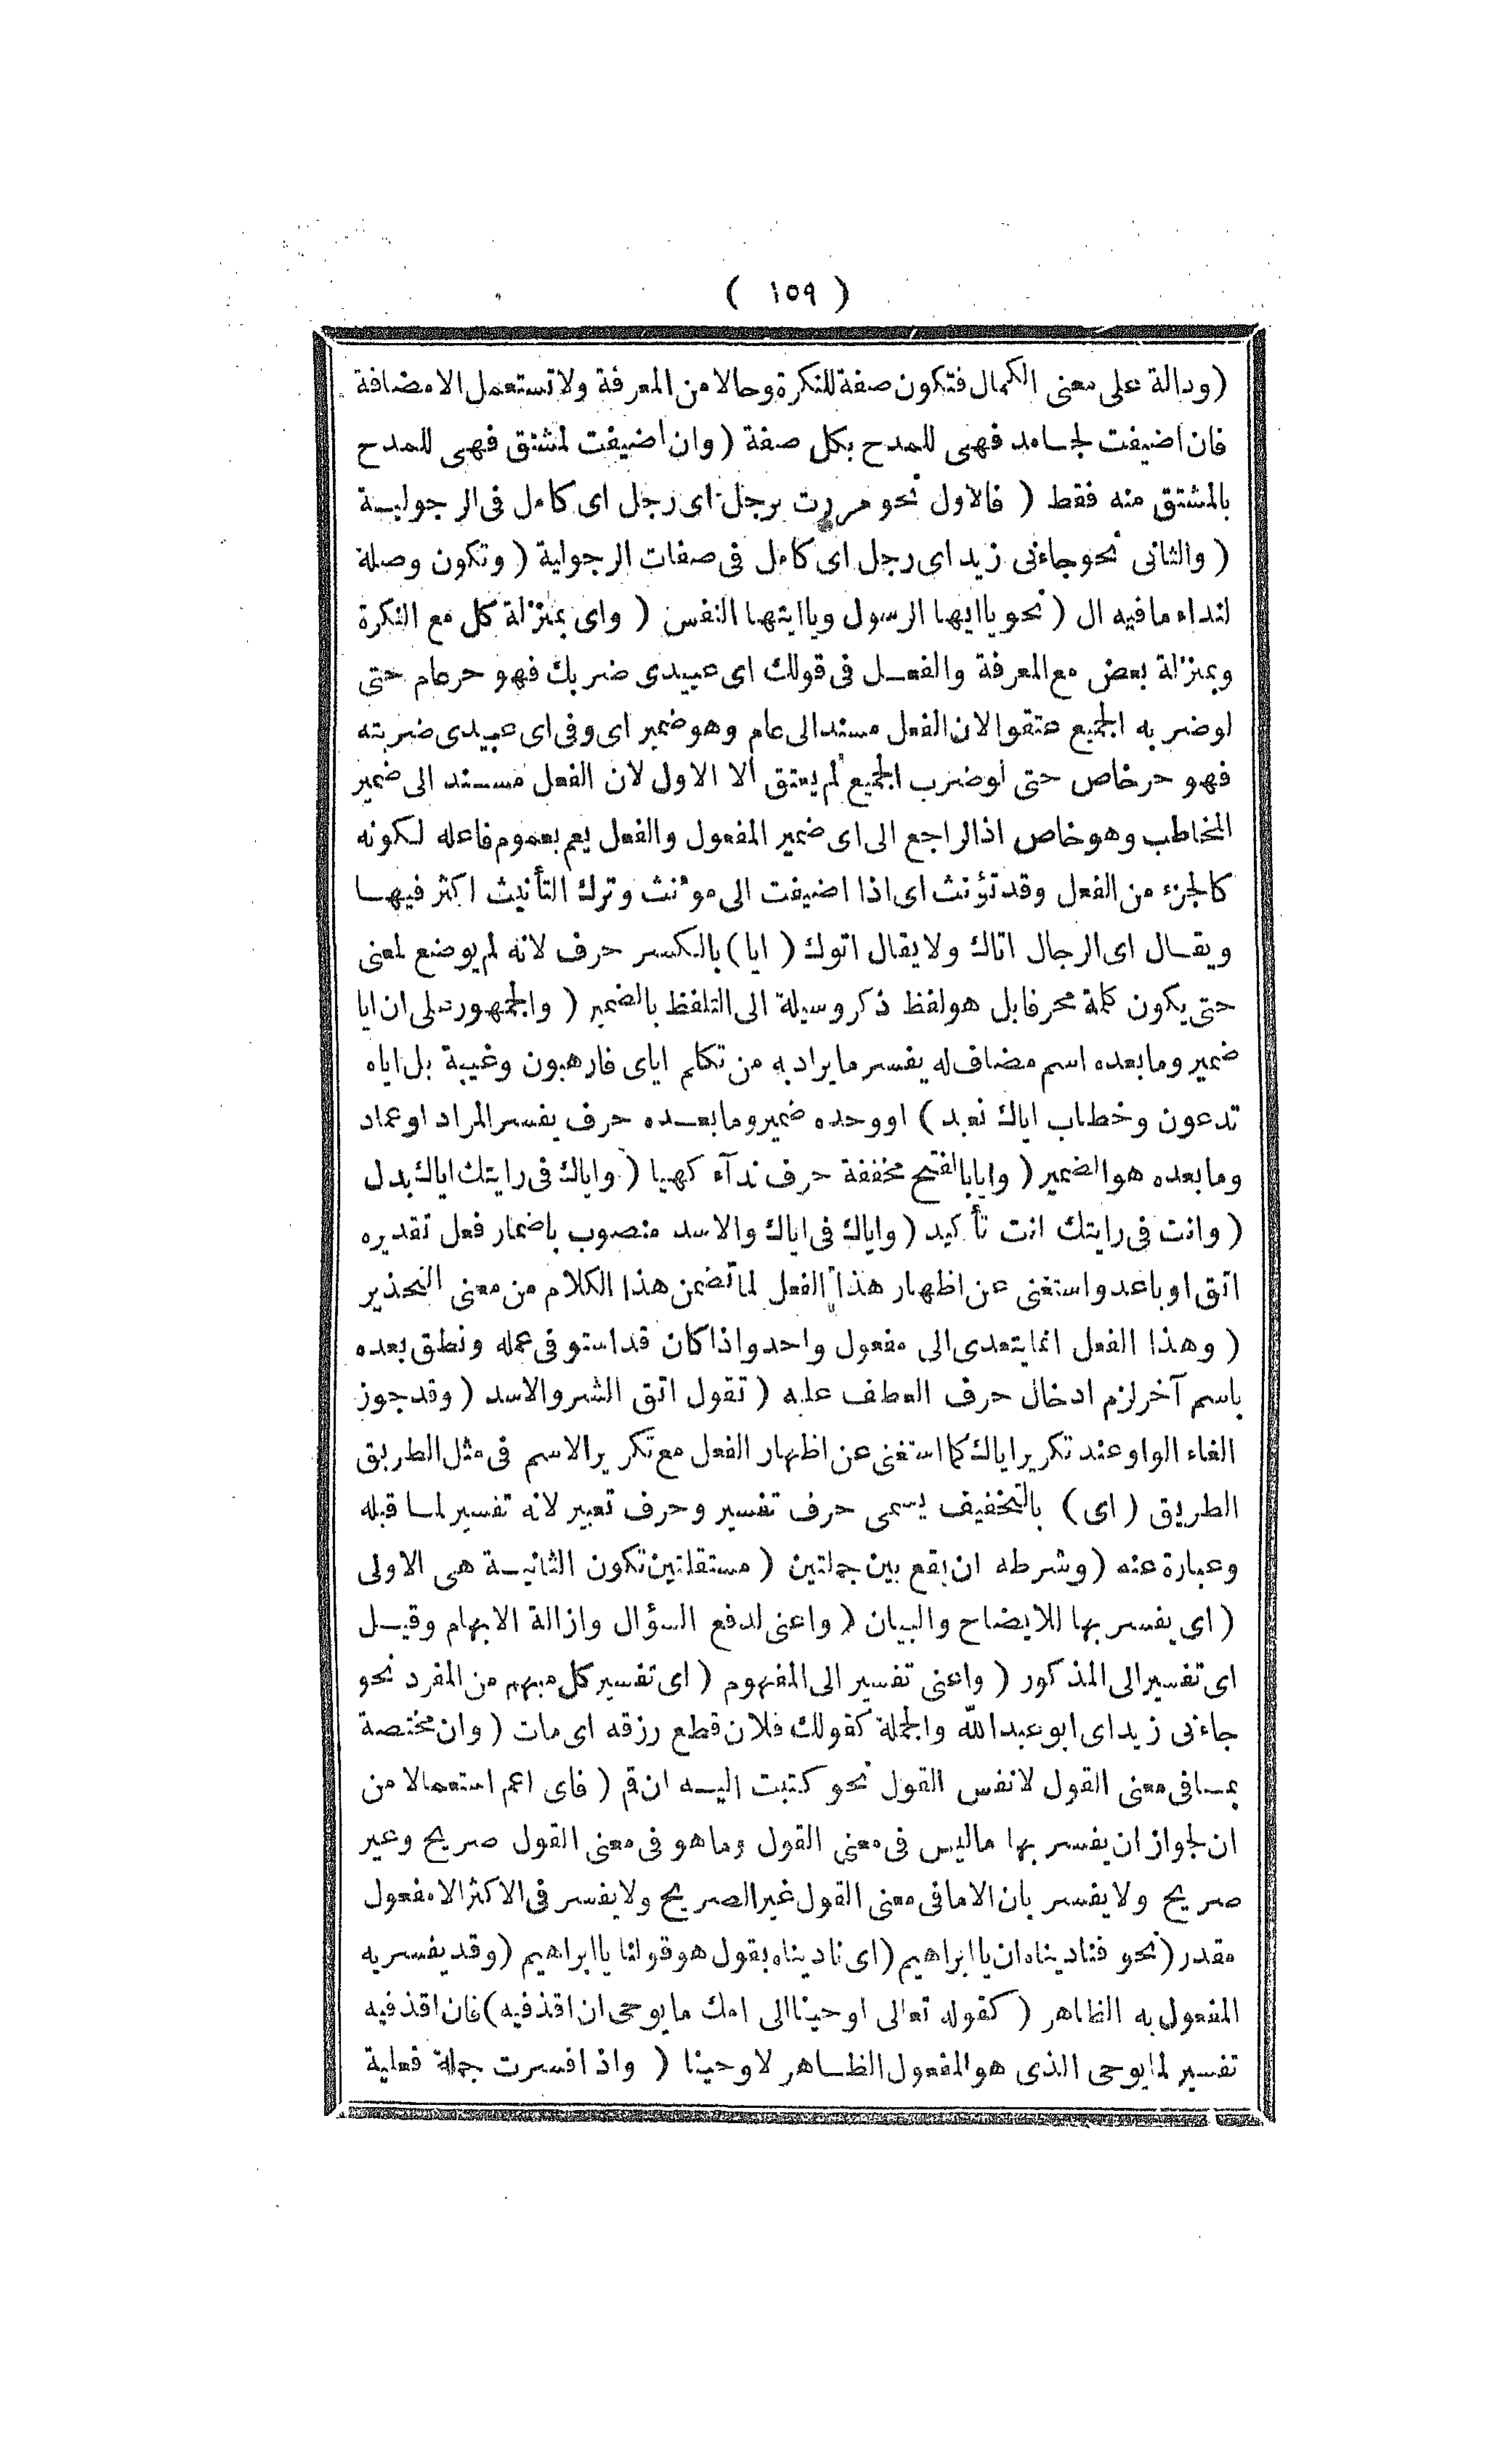 ( ١٥٩ )
( ودالة على معنى الكمال فتكون صفة للنكرة وحالا من المعرفة ولا تستعمل الا مضافة
فان اضيفت لجامد فهى للمدح بكل صفة ( وان اضيفت لمشتق فهى للمدح
بالمشتق منه فقط ( فالاول نحو مررت برجل اى رجل اى كامل فى الرجولية
( والثانى نحو جاءنى زيد اى رجل اى كامل فى صفات الرجولية ( وتكون وصلة
لنداء ما فيه ال ( نحو يا ايها الرسول ويا ايتها النفس ( واى بمنزلة كل مع النكرة
وبمنزلة بعض مع المعرفة والفعل فى قولك اى عبيدى ضربك فهو حر عام حتى
لو ضربه الجميع عتقوا لان الفعل مسند الى عام وهو ضمير اى وفى اى عبيدى ضربته
فهو حر خاص حتى لو ضرب الجميع لم يعتق الا الاول لان الفعل مسند الى ضمير
المخاطب وهو خاص اذ الراجع الى اى ضمير المفعول والفعل يعم بعموم فاعله لكونه
كالجزء من الفعل وقد تؤنث اى اذا اضيفت الى مؤنث وترك التأنيث اكثر فيها
ويقال اى الرجال اتاك ولا يقال اتوك ( ايا ) بالكسر حرف لانه لم يوضع لمعنى
حتى يكون كلمة محرفا بل هو لفظ ذكر وسيلة الى التلفظ بالضمير ( والجمهور على ان ايا
ضمير وما بعده اسم مضاف له يفسر ما يراد به من تكلم اياى فارهبون وغيبة بل اياه
تدعون وخطاب اياك نعبد ) او وحده ضمير وما بعده حرف يفسر المراد او عماد
وما بعده هو الضمير ( وايا بالفتح مخففة حرف ندآء كهيا ( واياك فى رايتك اياك بدل
( وانت فى رايتك انت تأكيد ( واياك فى اياك والاسد منصوب باضمار فعل تقديره
اتق او باعد واستغنى عن اظهار هذا الفعل لما تضمن هذا الكلام من معنى التحذير
( وهذا الفعل انما يتعدى الى مفعول واحد واذا كان قد استوفى عمله ونطق بعده
باسم آخر لزم ادخال حرف العطف عليه ( تقول اتق الشر والاسد ( وقد جوز
الغاء الواو عند تكرير اياك كما استغنى عن اظهار الفعل مع تكرير الاسم فى مثل الطريق
الطريق ( اى ) بالتخفيف يسمى حرف تفسير وحرف تعبير لانه تفسير لما قبله
وعبارة عنه ( وشرطه ان يقع بين جملتين ( مستقلتين تكون الثانية هى الاولى
( اى يفسر بها للايضاح والبيان ( واعنى لدفع السؤال وازالة الابهام وقيل
اى تفسير الى المذكور ( واعنى تفسير الى المفهوم ( اى تفسير كل مبهم من المفرد نحو
جاءنى زيد اى ابو عبد الله والجملة كقولك فلان قطع رزقه اى مات ( وان مختصة
بما فى معنى القول لا نفس القول نحو كتبت اليه ان قم ( فاى اعم استعمالا من
ان لجواز ان يفسر بها ما ليس فى معنى القول وما هو فى معنى القول صريح وغير
صريح ولا يفسر بان الا ما فى معنى القول غير الصريح ولا يفسر فى الاكثر الا مفعول
مقدر ( نحو فناديناه ان يا ابراهيم ( اى ناديناه بقول هو قولنا يا ابراهيم ( وقد يفسر به
المفعول به الظاهر ( كقوله تعالى اوحينا الى امك ما يوحى ان اقذفيه ) فان اقذفيه
تفسير لما يوحى الذى هو المفعول الظاهر لاوحينا ( واذا فسرت جملة فعلية